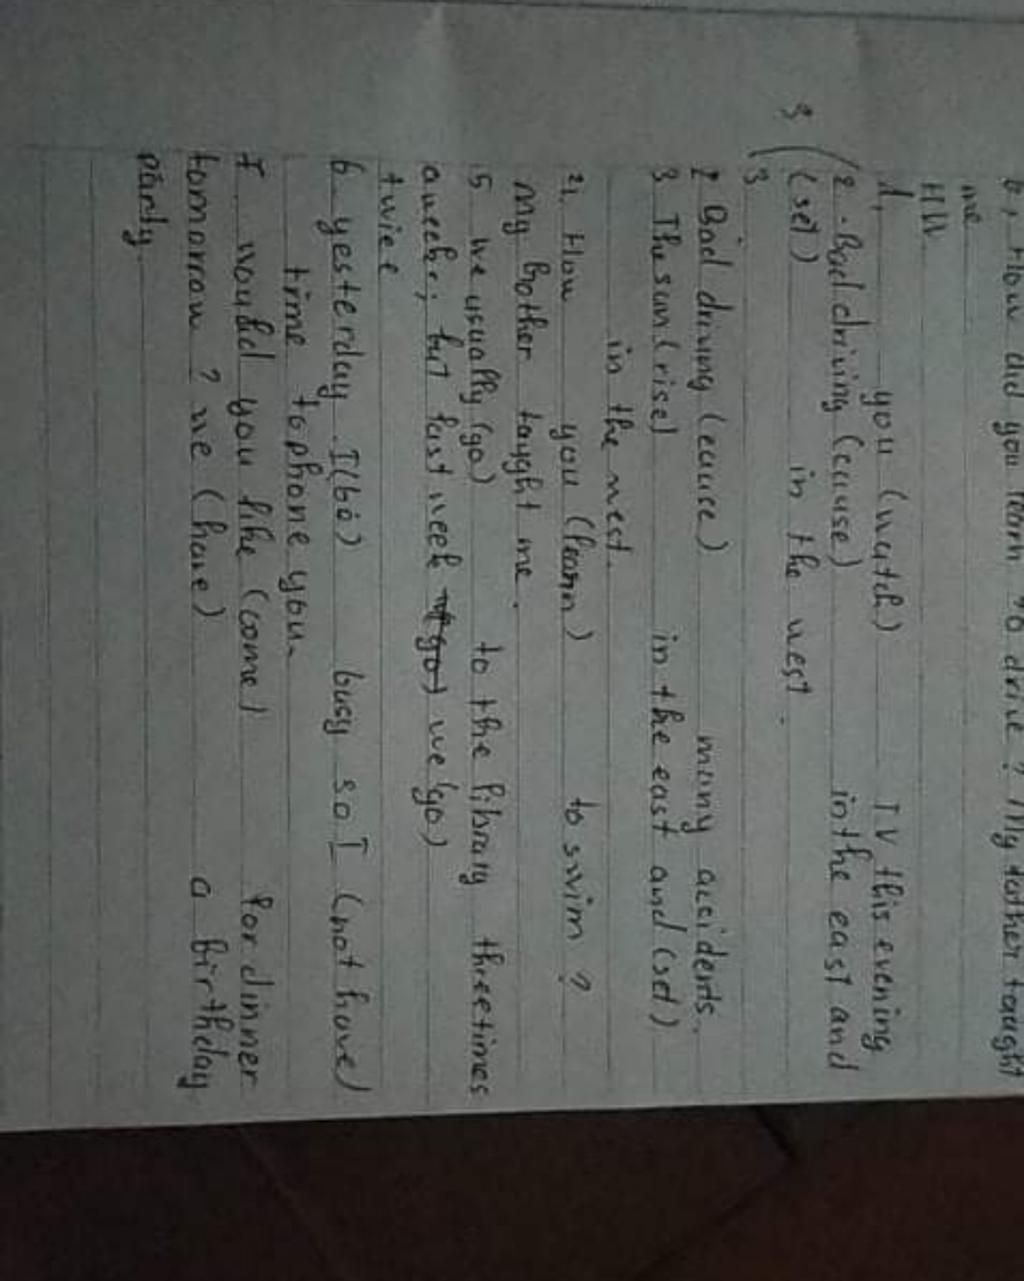 b, How did you learn to drive? My father taught
me
HW
1, you (watch) TV this evening
2 - Bad driving (cause) in the east and
(set) in the west.
3
2 Bad driving (cause) many accidents.
3 The sun (rise) in the east and (set)
in the west.
4. How you (learn) to swim?
My Bother tayght me.
5 we usually (go) to the library threetimes
aweeke; but last week (go) we (go)
twice
6 yesterday I(be) busy so I (not have)
time to phone you.
7 would you like (come) for dinner
tomorrow? we (have) a birthday
party